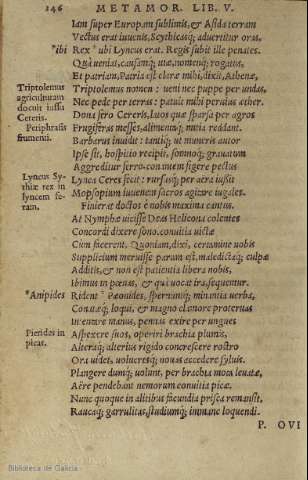 146 METAMOR. LIB. V.
Iam super Europam sublimis, & Asida terram
Vectus erat iuuenis, Scythicasq; aduertitur oras.
*ibi Rex *ubi Lyncus erat. Regis subit ille penates.
Quà ueniat, causamq; uiæ, nomenq; rogatus,
Et patriam, Patria est claræ mihi, dixit, Athenæ,
Triptolemus Triptolemus nomen: ueni nec puppe per undas,
agriculturam Nec pede per terras: patuit mihi peruius æther.
docuit iussu Dona fero Cereris, Latos quæ sparsa per agros
Cereris.
Periphrasis Frugiferas messes, alimentaq; mitia reddant.
frumenti. Barbarus inuidit: tantiq; ut muneris autor
Ipse sit, hospitio recipit, somnoq; grauatum
Aggreditur ferro. conantem figere pectus
Lyncus Scy- Lynca Ceres fecit: rursusq; per aëra iussit
thiæ rex in Mopsopium iuuenem sacros agitare iugales.
lyncem fe-
ram. Finierat doctos è nobis maxima cantus.
At Nymphæ uicisse Deas Helicona colentes
Concordi dixere sono. conuitia uictæ
Cum iacerent, Quoniam, dixi, certamine uobis
Supplicium meruisse parum est, maledictaq; culpæ
Additis, & non est patientia libera nobis,
Ibimus in pœnas, & quà uocat ira, sequemur.
*Aonpides Rident *Pæonides, spernuntq; minantia uerba,
Conatæq; loqui, & magno clamore proteruas
Intentare manus, pennas exire per ungues
Pierides in Aspexere suos, operiri brachia plumis,
picas. Alteraq; alterius rigido concrescere rostro
Ora uidet, uolucresq; nouas accedere syluis.
Plangere dumq; uolunt, per brachia mota leuatæ,
Aëre pendebant nemorum conuitia picæ.
Nunc quoque in alitibus facundia prisca remansit,
Raucaq; garrulitas, studiumq; immane loquendi.
P. OVI
Biblioteca de Galicia